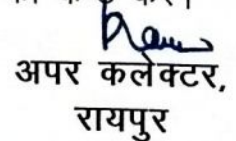 अपर कलेक्टर,
रायपुर